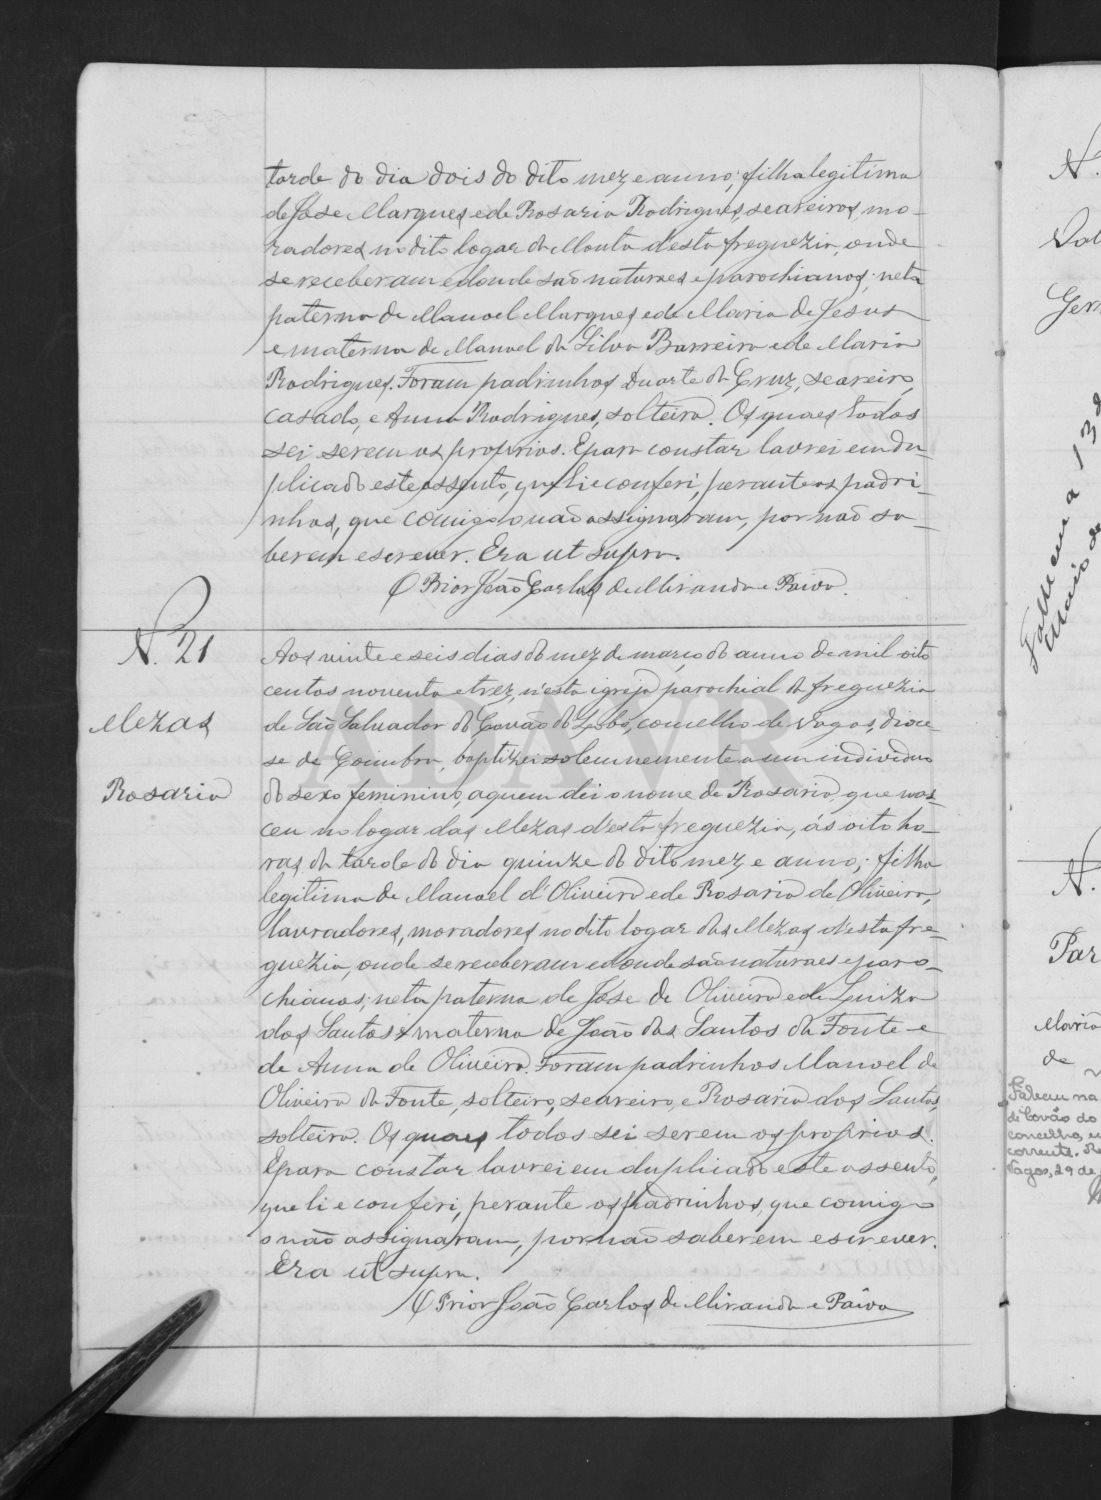 tarde do dia dois do dito mez e anno; filha legitima
de José Marques e de Rosaria Rodrigues, seareiros, mo-
radores no dito logar da Mouta d'esta freguezia, onde
se receberam e donde são naturaes e parochianos; neta
paterna de Manoel Marques e de Maria de Jesus
e materna de Manoel da Silva Barreira e de Maria
Rodrigues. Foram padrinhos Duarte da Cruz, seareiro,
casado, e Anna Rodrigues, solteira. Os quaes todos
sei serem os proprios. E para constar lavrei em du-
plicado este assento, que li e conferi, perante os padri-
nhos, que comigo o não assignaram, por não sa-
berem escrever. Era ut supra.
O Prior João Carlos de Miranda e Paiva.
N. 21
Mezas
Rosaria
Aos vinte e seis dias do mez de março do anno de mil oito
centos noventa e trez, n'esta igreja parochial da freguezia
de São Salvador do Covão do Lobo, concelho de Vagos, dioce-
se de Coimbra, baptizei solemnemente a um individuo
do sexo feminino, a quem dei o nome de Rosaria, que nas-
ceu no logar das Mezas d'esta freguezia, ás oito ho-
ras da tarde do dia quinze do dito mez e anno; filha
legitima de Manoel d'Oliveira e de Rosaria de Oliveira,
lavradores, moradores no dito logar das Mezas d'esta fre-
guezia, onde se receberam e donde são naturaes e paro-
chianos; neta paterna de José de Oliveira e de Luiza
dos Santos e materna de João dos Santos da Fonte e
de Anna de Oliveira. Foram padrinhos Manoel de
Oliveira da Fonte, solteiro, seareiro, e Rosaria dos Santos,
solteira. Os quaes todos sei serem os proprios.
E para constar lavrei em duplicado este assento,
que li e conferi, perante os padrinhos, que comigo
o não assignaram, por não saberem escrever.
Era ut supra.
O Prior João Carlos de Miranda e Paiva
ADAVR
N.
Falleceu a 13 d
Maio de
N.
Par
Maria
de
Faleceu na
de Covão do
concelho, e
corrente.
Vagos, 29 de